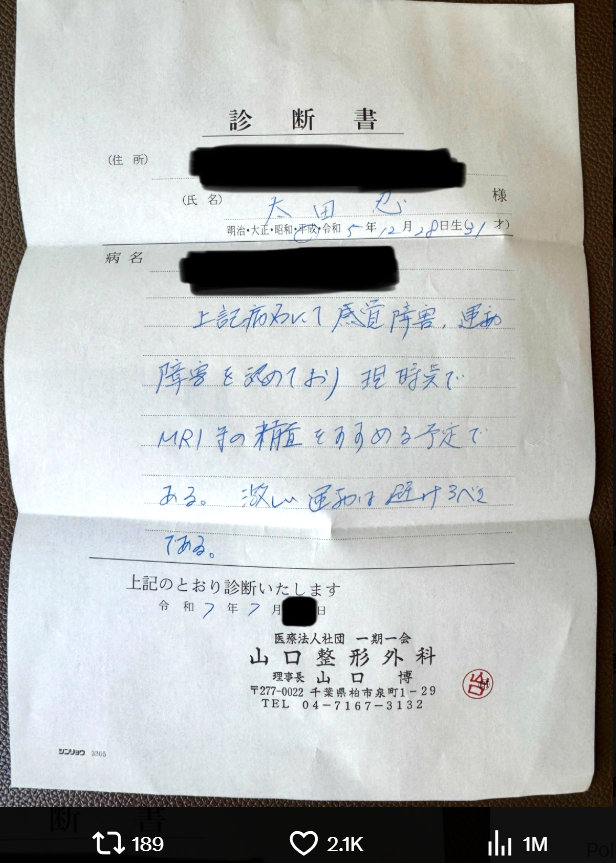 診断書
(住所)
(氏名) 太田 忍 様
明治・大正・昭和・平成・令和 5年12月28日生(31才)
病名
上記病名にて感覚障害、運動
障害を認めており現時点で
MRI等の精査をすすめる予定で
ある。激しい運動は避けるべき
である。
上記のとおり診断いたします
令和7年7月 日
医療法人社団 一期一会
山口整形外科
理事長 山口 博
〒277-0022 千葉県柏市泉町1-29
TEL 04-7167-3132
シンリョウ 3305
断 書
189 2.1K 1M